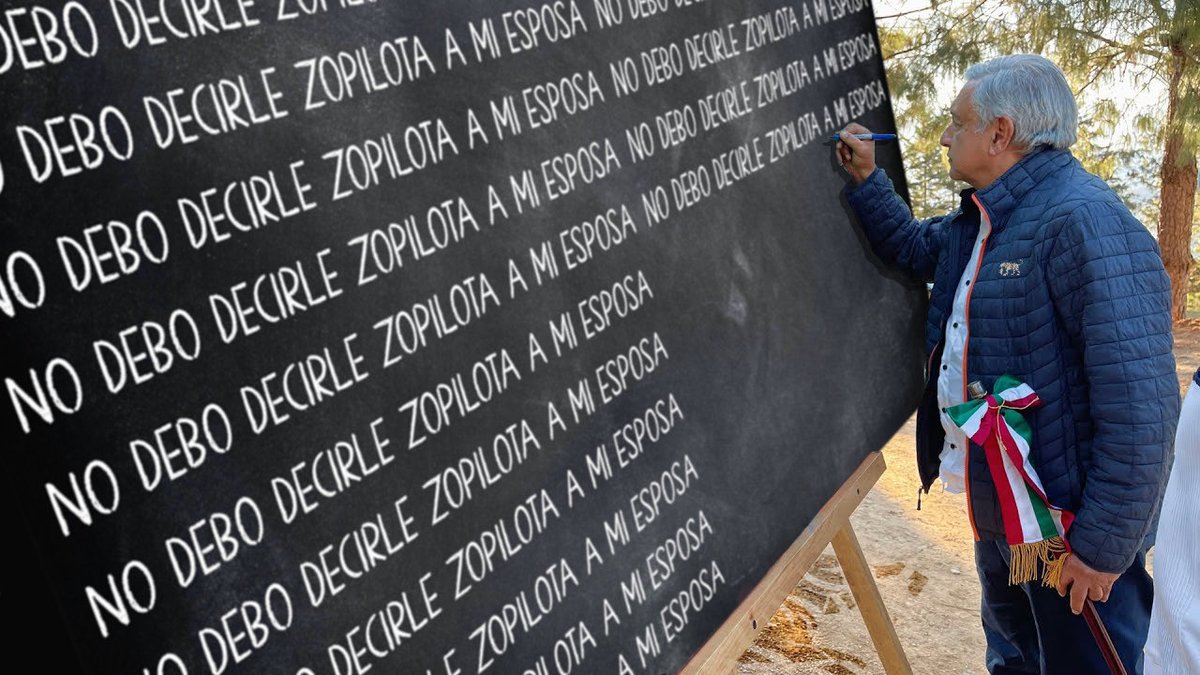 DEBO DECIRLE
DEBO DECIRLE ZOPILOTA A MI ESPOSA NO DEBO
NO DEBO DECIRLE ZOPILOTA A MI ESPOSA NO DEBO DECIRLE ZOPILOTA A MI ESPOSA
NO DEBO DECIRLE ZOPILOTA A MI ESPOSA NO DEBO DECIRLE ZOPILOTA A MI ESPOSA
NO DEBO DECIRLE ZOPILOTA A MI ESPOSA NO DEBO DECIRLE ZOPILOTA A MI ESPOSA
NO DEBO DECIRLE ZOPILOTA A MI ESPOSA
NO DEBO DECIRLE ZOPILOTA A MI ESPOSA
DEBO DECIRLE ZOPILOTA A MI ESPOSA
ZOPILOTA A MI ESPOSA
A MI ESPOSA
A MI ESPOSA